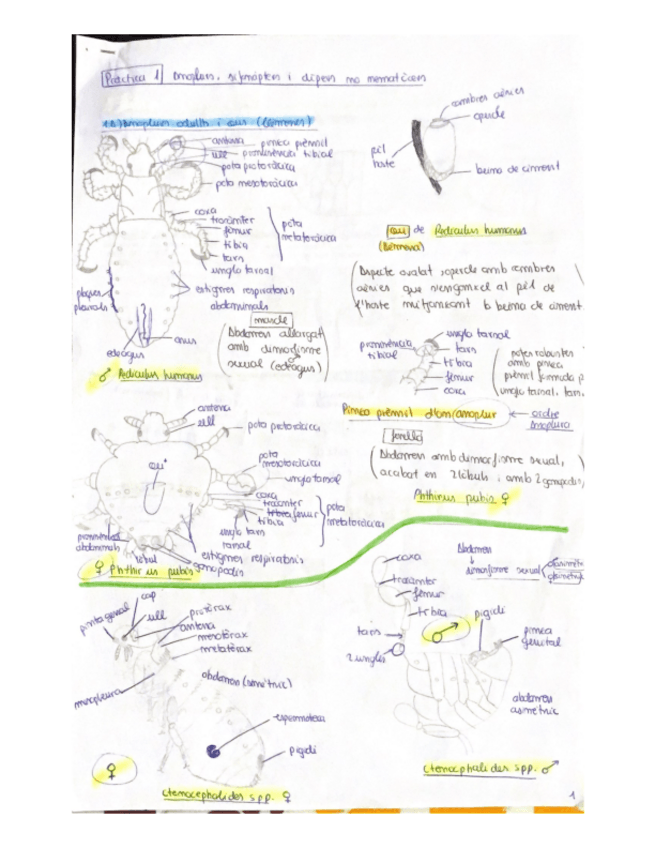 Pràctica 1 Anoplurs, sifonàpters i dípters no nematòcers
1.1) Anoplurs adults i ous (llémenes)
antena
pinça prènsil
ull
prominència tibial
pota protoràcica
pota mesotoràcica
coxa
trocànter
fèmur
tíbia
tars
ungla tarsal
pota
metatoràcica
plaques
pleurals
estigmes respiratoris
abdominals
anus
edeagus
♂ Pediculus humanus
mascle
Abdomen allargat
amb dimorfisme
sexual (edeagus)
cambres aèries
opercle
pèl
hoste
beina de ciment
ou de Pediculus humanus
(llémena)
Aspecte ovalat, opercle amb cambres
aèries que s'enganxa al pèl de
l'hoste mitjançant la beina de ciment
prominència
tibial
ungla tarsal
tars
tíbia
fèmur
coxa
potes robustes
amb pinça
prènsil formada p
ungla tarsal, tars,
Pinça prènsil d'un anoplur ← ordre
Anoplura
femella
Abdomen amb dimorfisme sexual,
acabat en 2 lòbuls i amb 2 gonopodis
Phthirus pubis ♀
antena
ull
pota protoràcica
ou
pota
mesotoràcica
ungla tarsal
coxa
trocànter
fèmur
tíbia
pota
metatoràcica
ungla tars
prominències
abdominals
lòbul
estigmes respiratoris
gonopodis
♀ Phthirus pubis
cap
pinta genal
ull
protòrax
antena
mesotòrax
metatòrax
mesopleura
abdomen (simètric)
espermateca
pigidi
♀
Ctenocephalides spp. ♀
coxa
trocànter
fèmur
tíbia
tars
2 ungles
Abdomen
↓
dimorfisme sexual
♂
pigidi
pinça
genital
abdomen
asimètric
Ctenocephalides spp. ♂
1